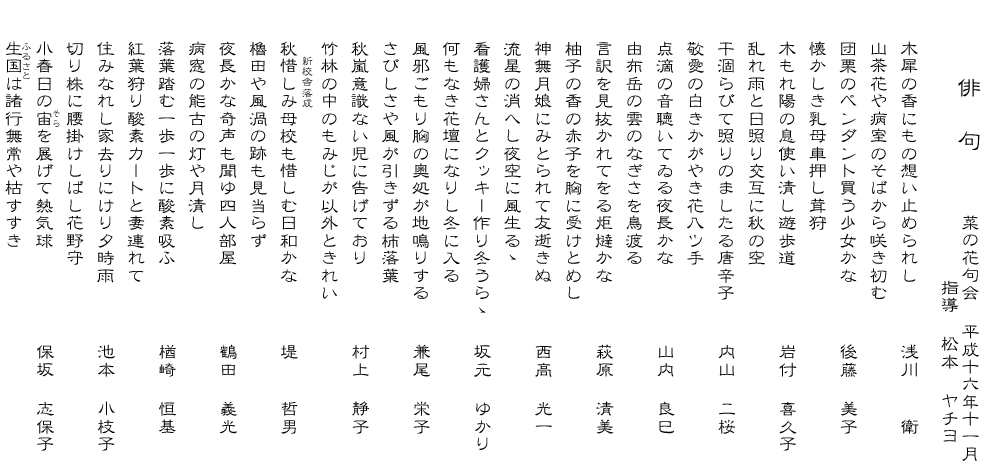 俳句
菜の花句会 平成十六年十一月
指導 松本 ヤチヨ
木犀の香にもの想い止められし 浅川 衛
山茶花や病室のそばから咲き初む
団栗のペンダント買う少女かな 後藤 美子
懐かしき乳母車押し茸狩
木もれ陽の息使い清し遊歩道 岩付 喜久子
乱れ雨と日照り交互に秋の空
干涸らびて照りのましたる唐辛子 内山 二桜
敬愛の白きかがやき花八ツ手
点滴の音聴いてゐる夜長かな 山内 良巳
由布岳の雲のなぎさを鳥渡る
言訳を見抜かれてをる炬燵かな 萩原 清美
柚子の香の赤子を胸に受けとめし
神無月娘にみとられて友逝きぬ 西高 光一
流星の消へし夜空に風生るゝ
看護婦さんとクッキー作り冬うらゝ 坂元 ゆかり
何もなき花壇になりし冬に入る
風邪ごもり胸の奥処が地鳴りする 兼尾 栄子
さびしさや風が引きずる柿落葉
秋嵐意識ない児に告げており 村上 靜子
竹林の中のもみじが以外ときれい
新校舎落成
秋惜しみ母校も惜しむ日和かな 堤 哲男
櫓田や風渦の跡も見当らず
夜長かな奇声も聞ゆ四人部屋 鶴田 義光
病窓の能古の灯や月清し
落葉踏む一歩一歩に酸素吸ふ 楢崎 恒基
紅葉狩り酸素カートと妻連れて
住みなれし家去りにけり夕時雨 池本 小枝子
切り株に腰掛けしばし花野守
小春日の宙を展げて熱気球 保坂 志保子
そら
生国は諸行無常や枯すすき
ふるさと